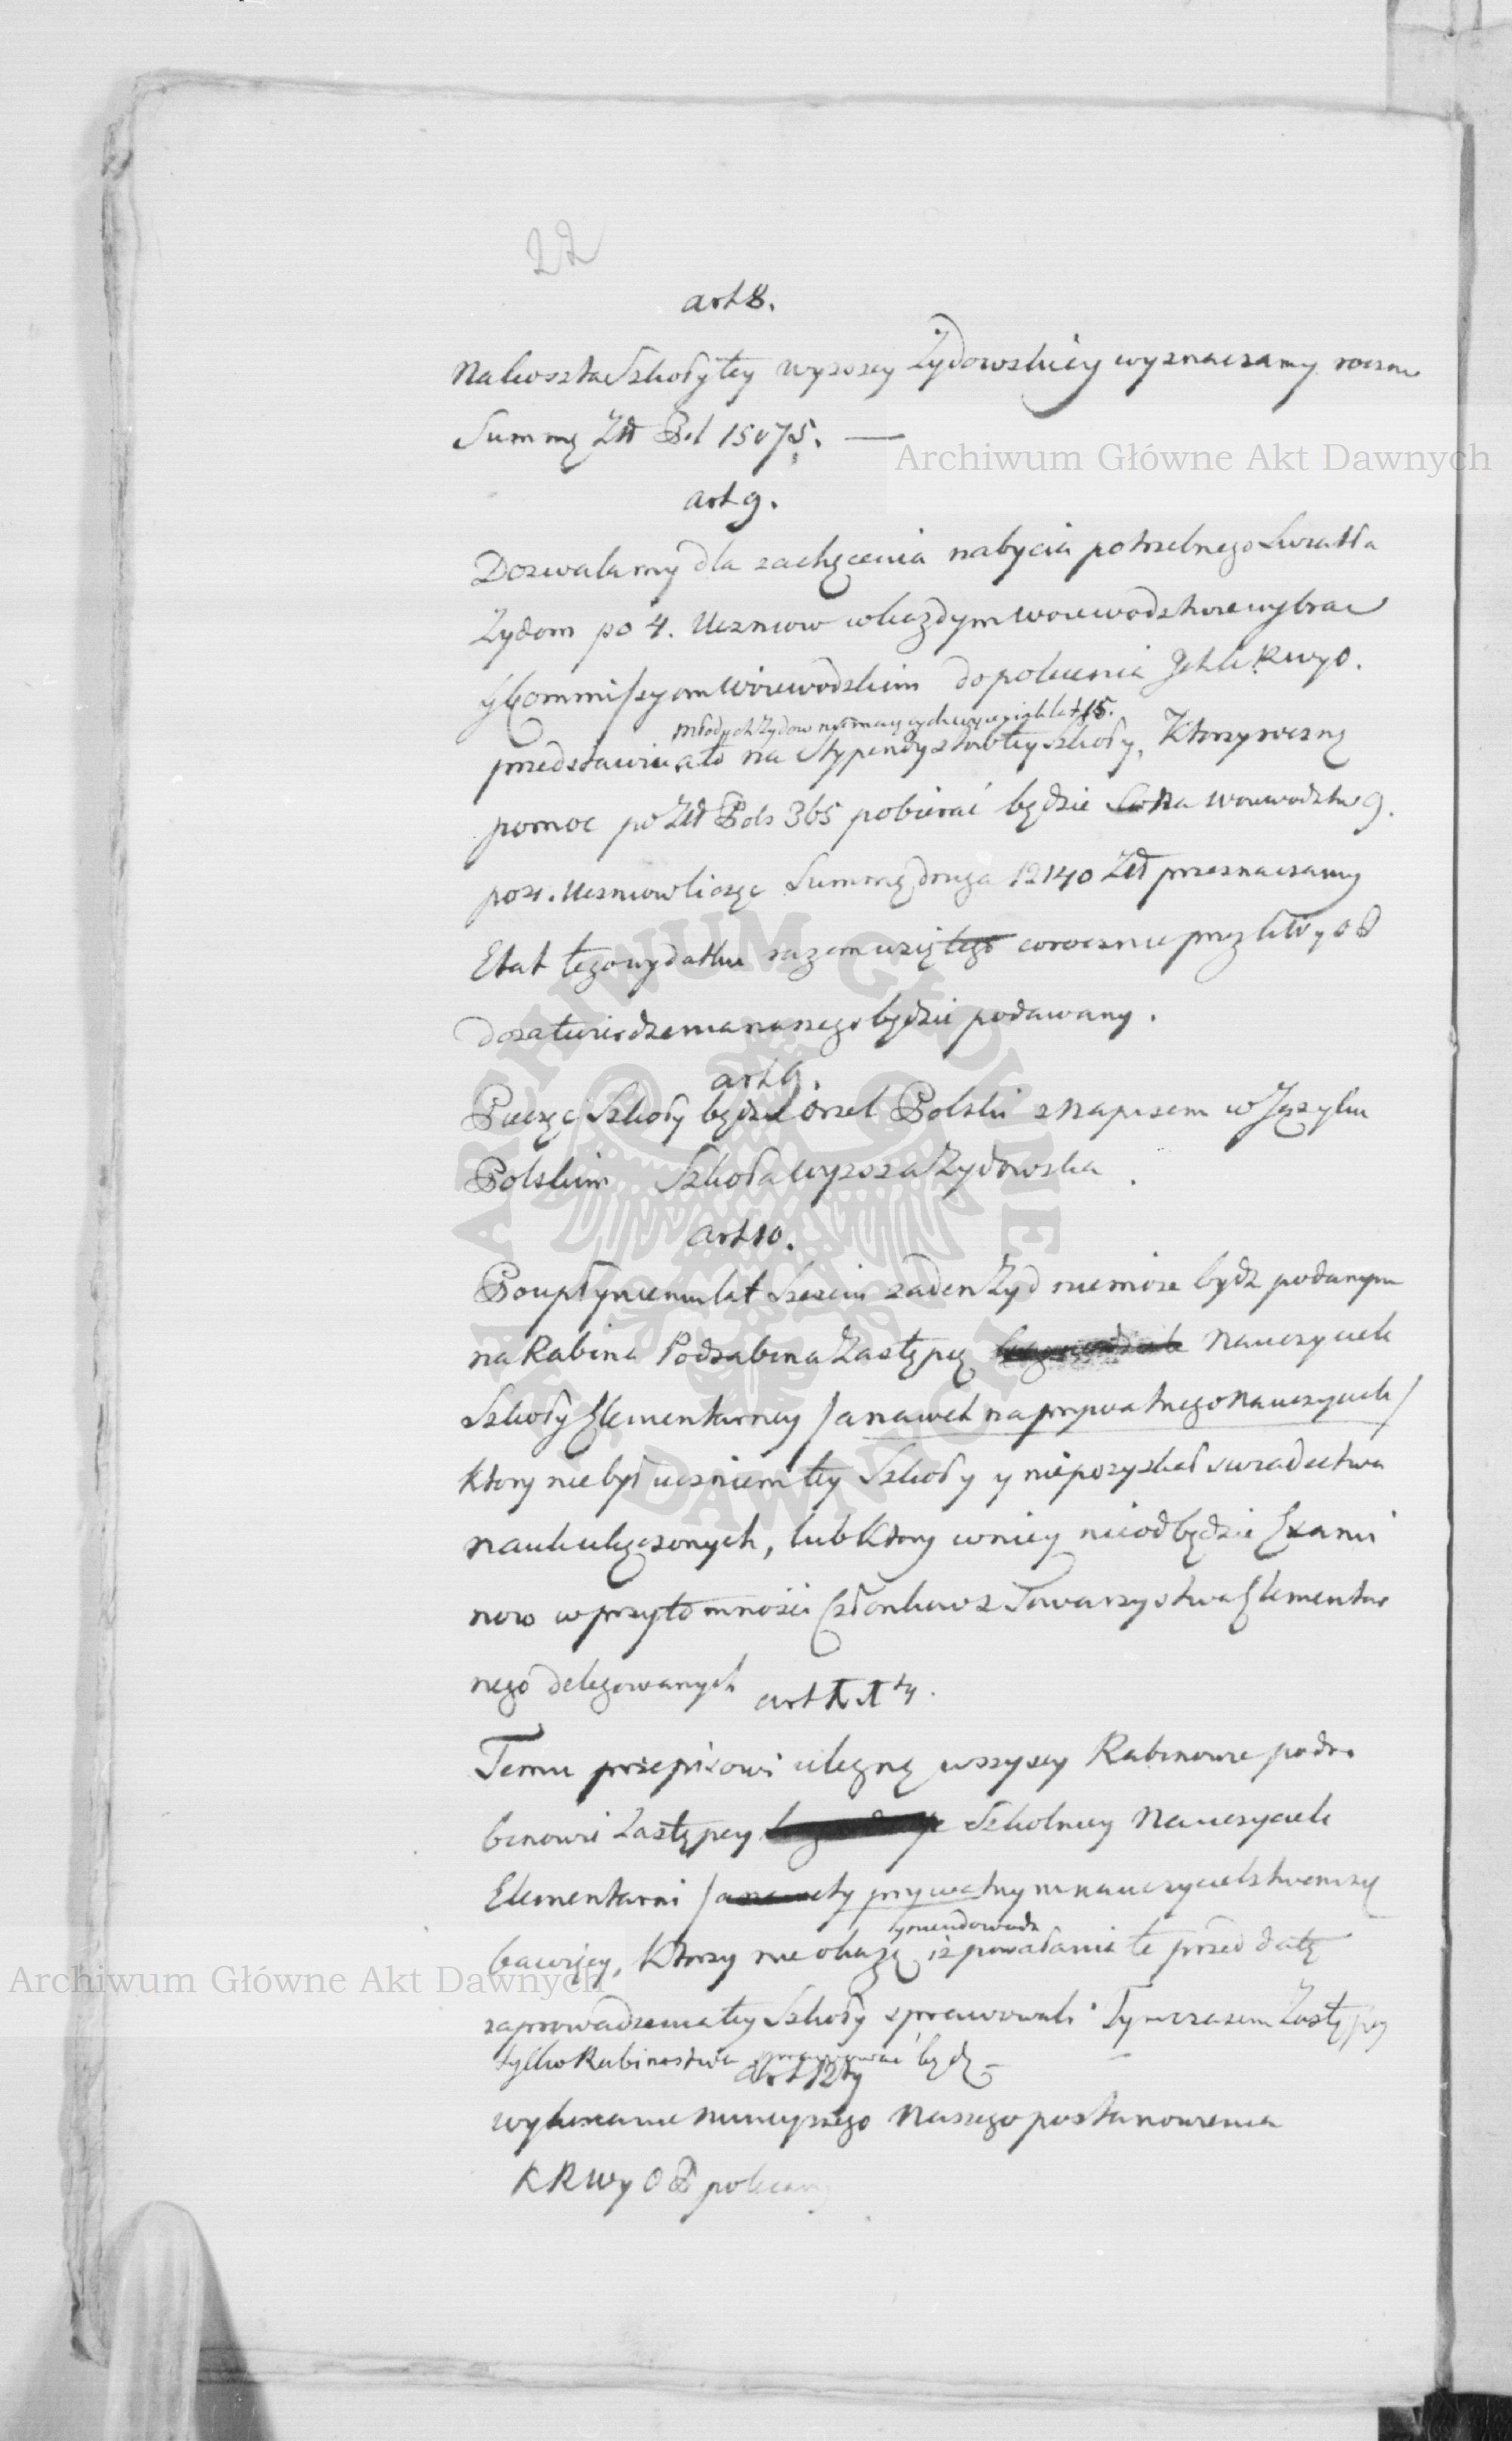 22
art 8.
Na koszta Szkoły tey wyzszey Żydowskiey wyznaczamy roczn
Summę Złł Pol 15075. —
Archiwum Główne Akt Dawnych
art 9.
Dozwalamy dla zachęcenia nabycia potrzebnego Swiatła
Zydom po 4. Uczniow w każdym Woiewodztwie wybrac
y Kommissyom Woiewodzkim do polecenia
młodych Zydow niemaiących więcey iak lat 15.
przedstawić, a to na Stypendystow tey Szkoły, Ktorzy roczną
pomoc po Złł Pols 365 pobierać będzie na Woiewodztw 9.
po 4. Uczniow licząc Summę druga 12140 Złł przeznaczamy
Etat tego wydatku razem wziętego corocznie przez
do zatwierdzenia naszego będzie podawany.
art 9.
Pieczęć Szkoły będzie Orzeł Polski z Napisem w Języku
Polskim Szkoła wyzsza Zydowska.
art 10.
Po upłynieniu lat Szesciu zaden Zyd niemoze bydz podanym
na Rabina Podrabina Zastępcę Nauczyciela
Szkoły Elementarney / a nawet na prywatnego Nauczyciela /
Ktory nie był uczniem tey Szkoły y niepozyskał swiadectwa
nauk ukączonych, lub Ktory w niey nieodbędzie Exami
now w przytomności Członkow z Towarzystwa Elementar
nego delegowanych
art 11ty.
Temu przepisowi ulegną wszyscy Rabinowie podra
binowie Zastępcy Szkolney Nauczyciele
Elementarni / a nawet y prywatnym nauczycielstwem się
bawiący, Ktorzy nie okażą iz powołanie te przed datą
Archiwum Główne Akt Dawnych
zaprowadzenia tey Szkoły sprawowali. Tymczasem Zastępcy
tylko Rabinostwa sprawować będą
art 12ty
wykonanie ninieyszego Naszego postanowienia
K R W y O P polecamy
ARCHIWUM GŁÓWNE AKT DAWNYCH